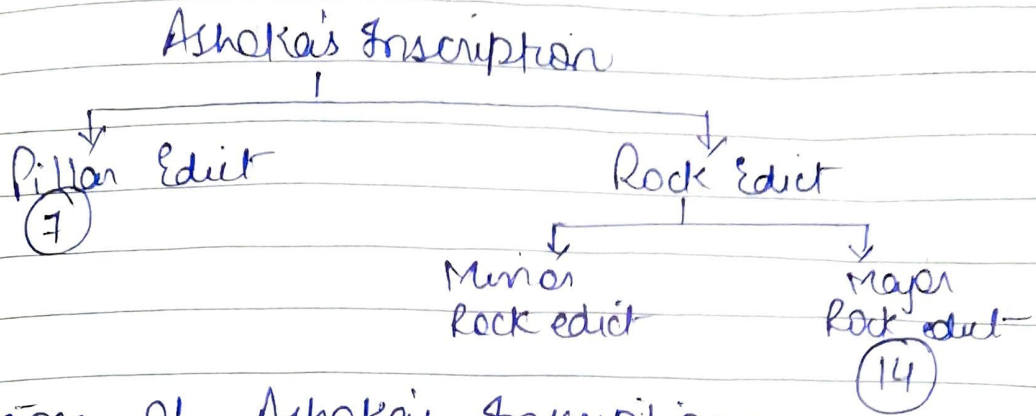 Ashoka's Inscription
Pillar Edict
Rock Edict
7
Minor
Rock edict
Major
Rock edict
14
of Ashoka's